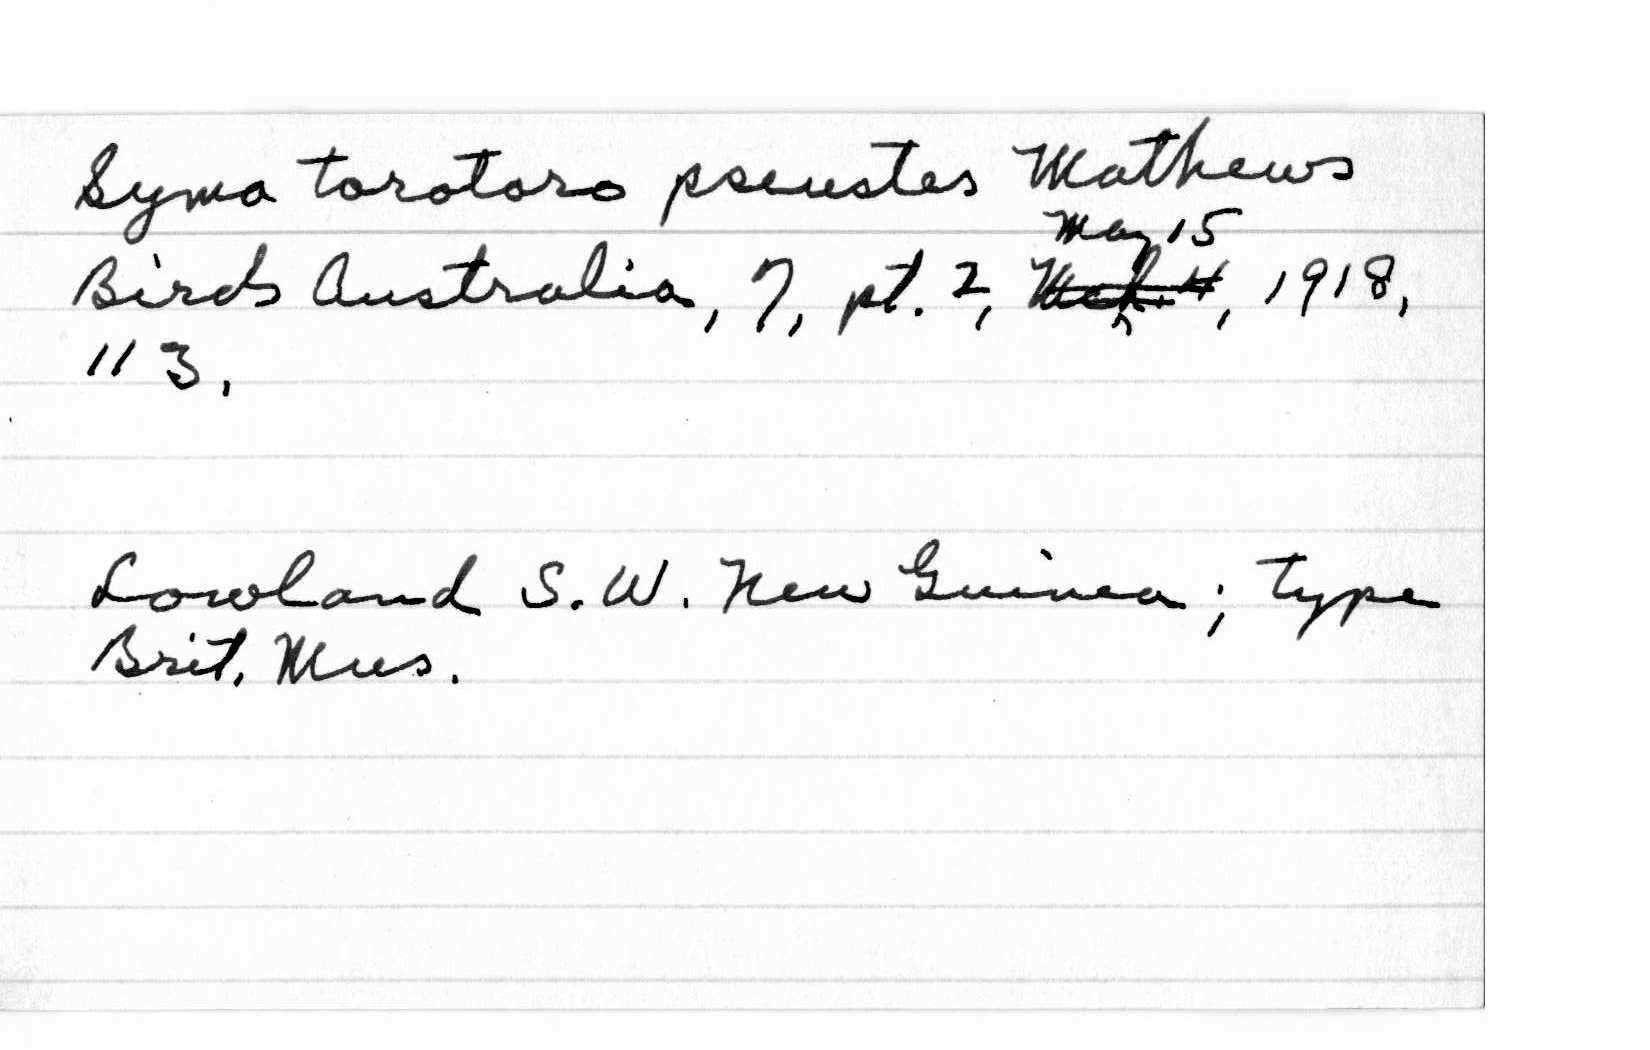 Syma torotoro pseustes Mathews
May 15
Birds Australia, 7, pt. 2, Mch. 4, 1918,
113.
Lowland S.W. New Guinea; type
Brit. Mus.